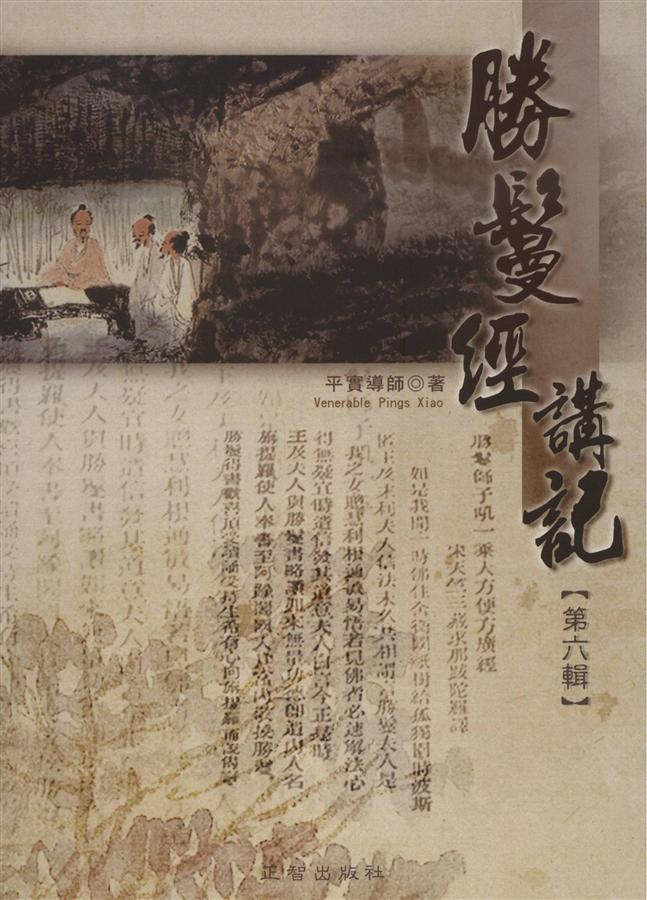 勝鬘經
講記
【第六輯】
平實導師◎著
Venerable Pings Xiao
勝鬘師子吼一乘大方便方廣經
宋天竺三藏求那跋陀羅譯
如是我聞一時佛住舍衛國祇樹給孤獨園時波斯
匿王及末利夫人信法未久共相謂言勝鬘夫人是
我之女聰慧利根通敏易悟若見佛者必速解法心
得無疑宜時遣信發其道意夫人白言今正是時
王及夫人與勝鬘書略讚如來無量功德即遣內人名
旃提羅使人奉書至阿踰闍國入其宮內敬授勝鬘
勝鬘得書歡喜頂受讀誦受持生希有心向旃提羅而說偈言
正智出版社